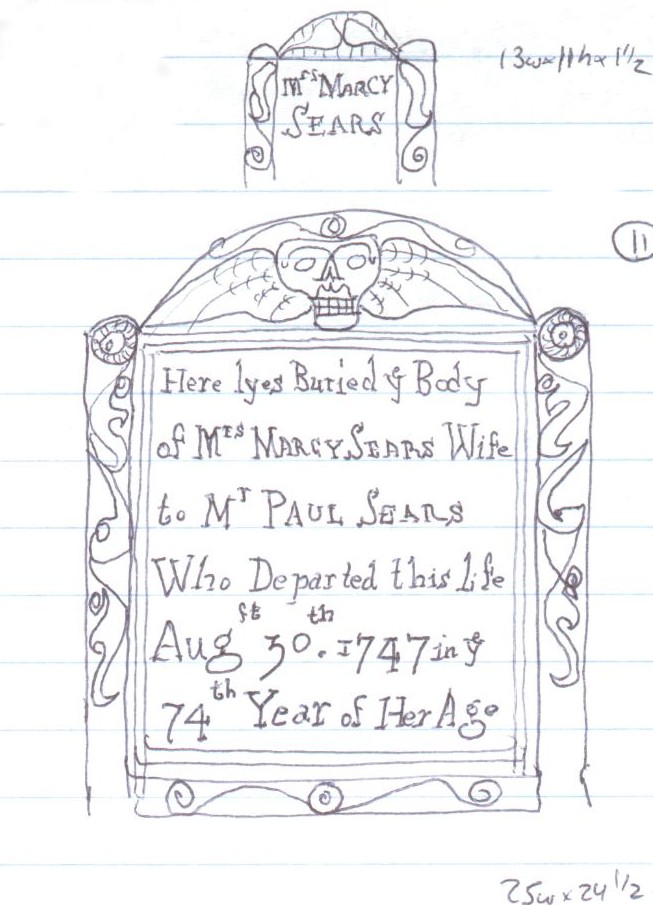 13w x 11h x 1 1/2
Mrs MARCY
SEARS
11
Here lyes Buried ye Body
of Mrs MARCY SEARS Wife
to Mr PAUL SEARS
Who Departed this Life
Augst 30th. 1747 in ye
74th Year of Her Age
25w x 24 1/2